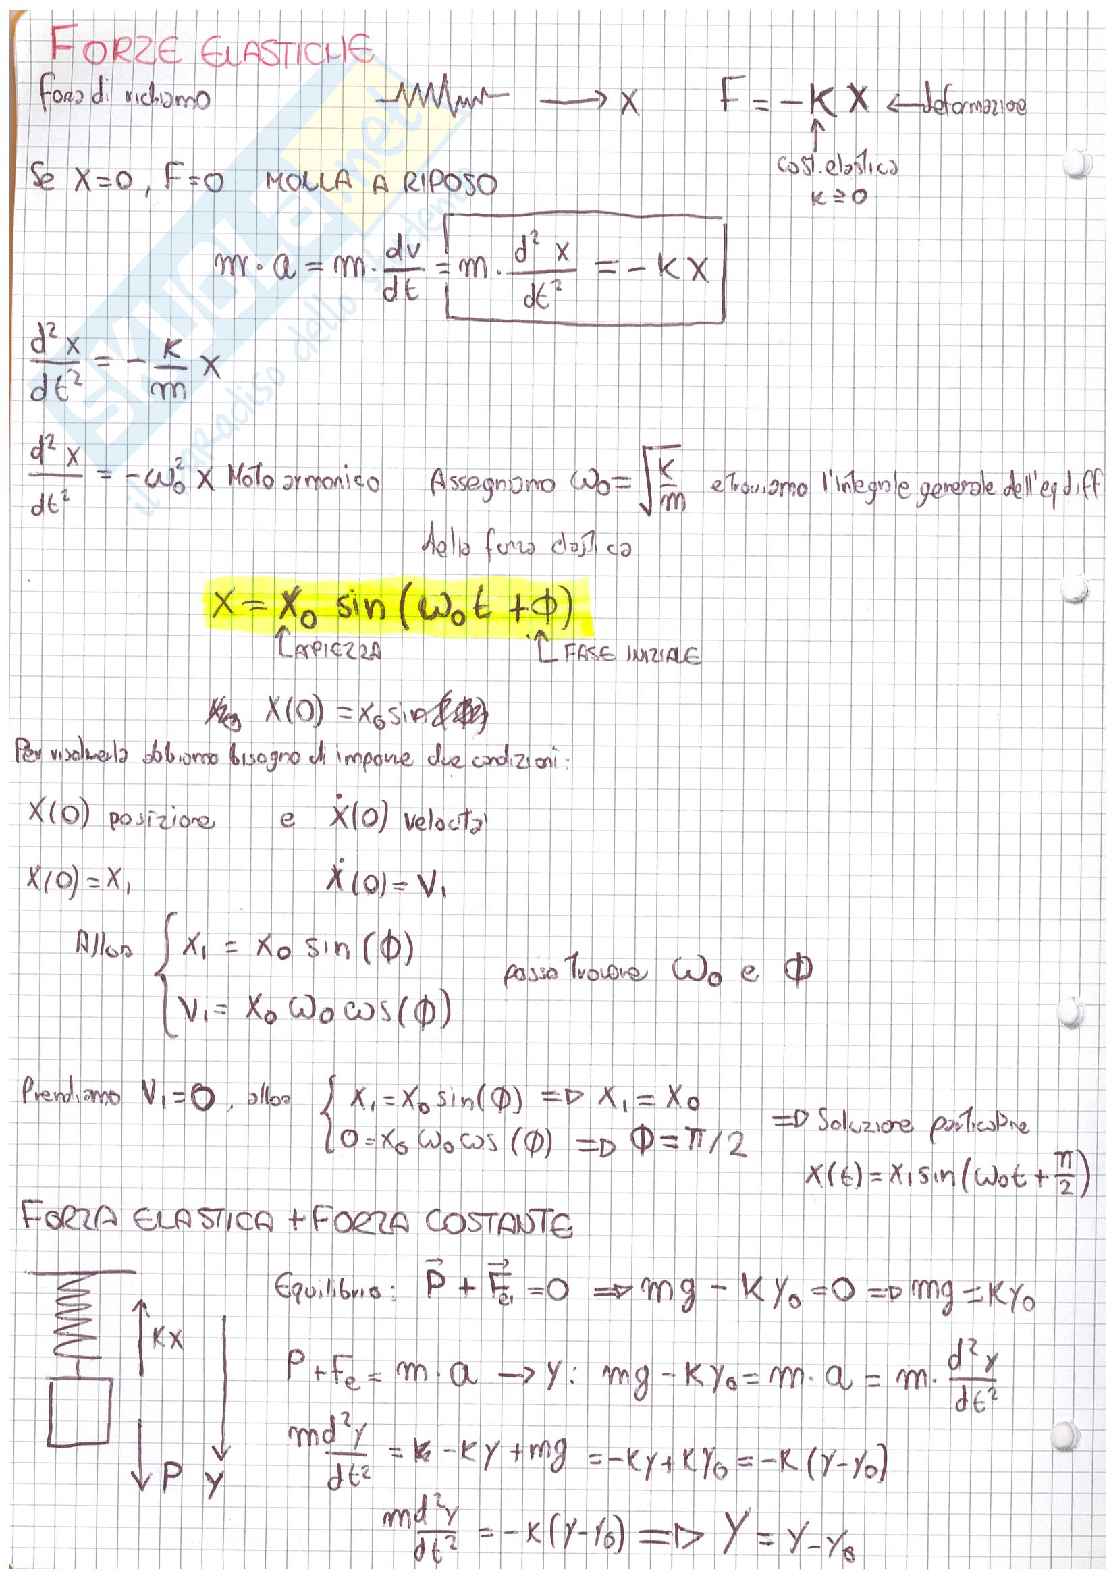 FORZE ELASTICHE
forza di richiamo → X F = -K X ← deformazione
↑
cost. elastica
K ≥ 0
Se X=0, F=0 MOLLA A RIPOSO
m·a = m·dv/dt = m·d²x/dt² = -KX
d²x/dt² = -K/m X
d²x/dt² = -ω₀² X Moto armonico Assegnamo ω₀ = √(K/m) e troviamo l'integrale generale dell'eq diff
della forza elastica
X = X₀ sin (ω₀t + ϕ)
↑ APIEZZA ↑ FASE INIZIALE
X(0) = X₀ sin
Per risolverla abbiamo bisogno di imporre due condizioni:
X(0) posizione e Ẋ(0) velocità
X(0) = X₁ Ẋ(0) = V₁
Allora { X₁ = X₀ sin(ϕ)
posso trovare ω₀ e ϕ
V₁ = X₀ ω₀ cos(ϕ)
Prendiamo V₁=0, allora { X₁ = X₀ sin(ϕ) => X₁ = X₀
0 = X₀ ω₀ cos(ϕ) => ϕ = π/2
=> Soluzione particolare
X(t) = X₁ sin(ω₀t + π/2)
FORZA ELASTICA + FORZA COSTANTE
Equilibrio: P⃗ + F⃗e = 0 => mg - Ky₀ = 0 => mg = Ky₀
KX
P + Fe = m·a → y: mg - Ky₀ = m·a = m·d²y/dt²
md²y/dt² = -Ky + mg = -Ky + Ky₀ = -K(y-y₀)
P Y
md²y/dt² = -K(y-y₀) => Y = y-y₀